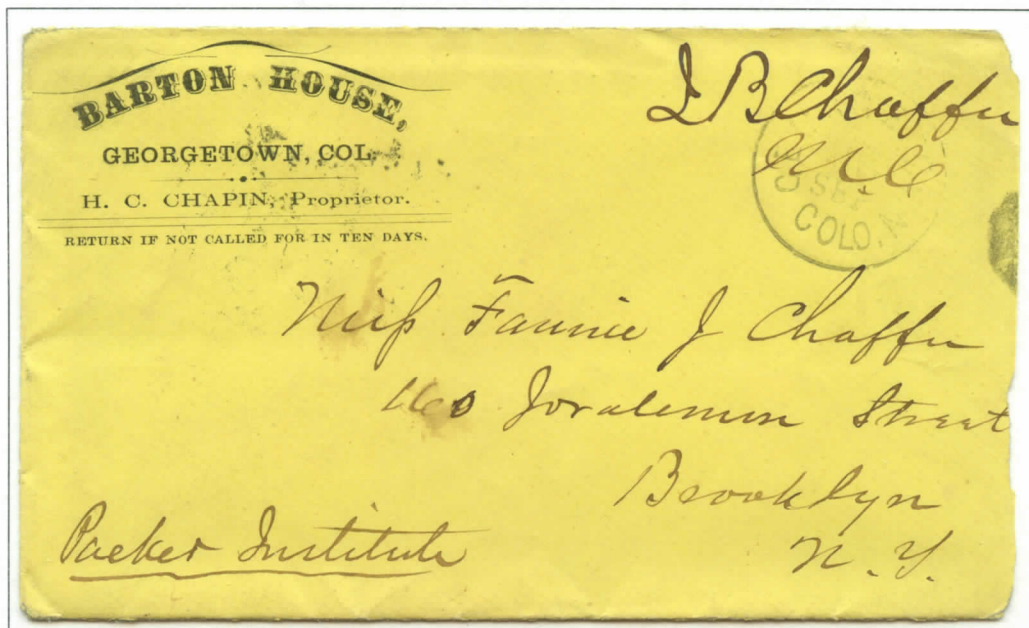 BARTON HOUSE,
GEORGETOWN, COL.
H. C. CHAPIN, Proprietor.
RETURN IF NOT CALLED FOR IN TEN DAYS.
J B Chaffee
M C
SEP
COLO.
Miss Fannie J Chaffee
160 Joralemon Street
Brooklyn
N. Y.
Packer Institute